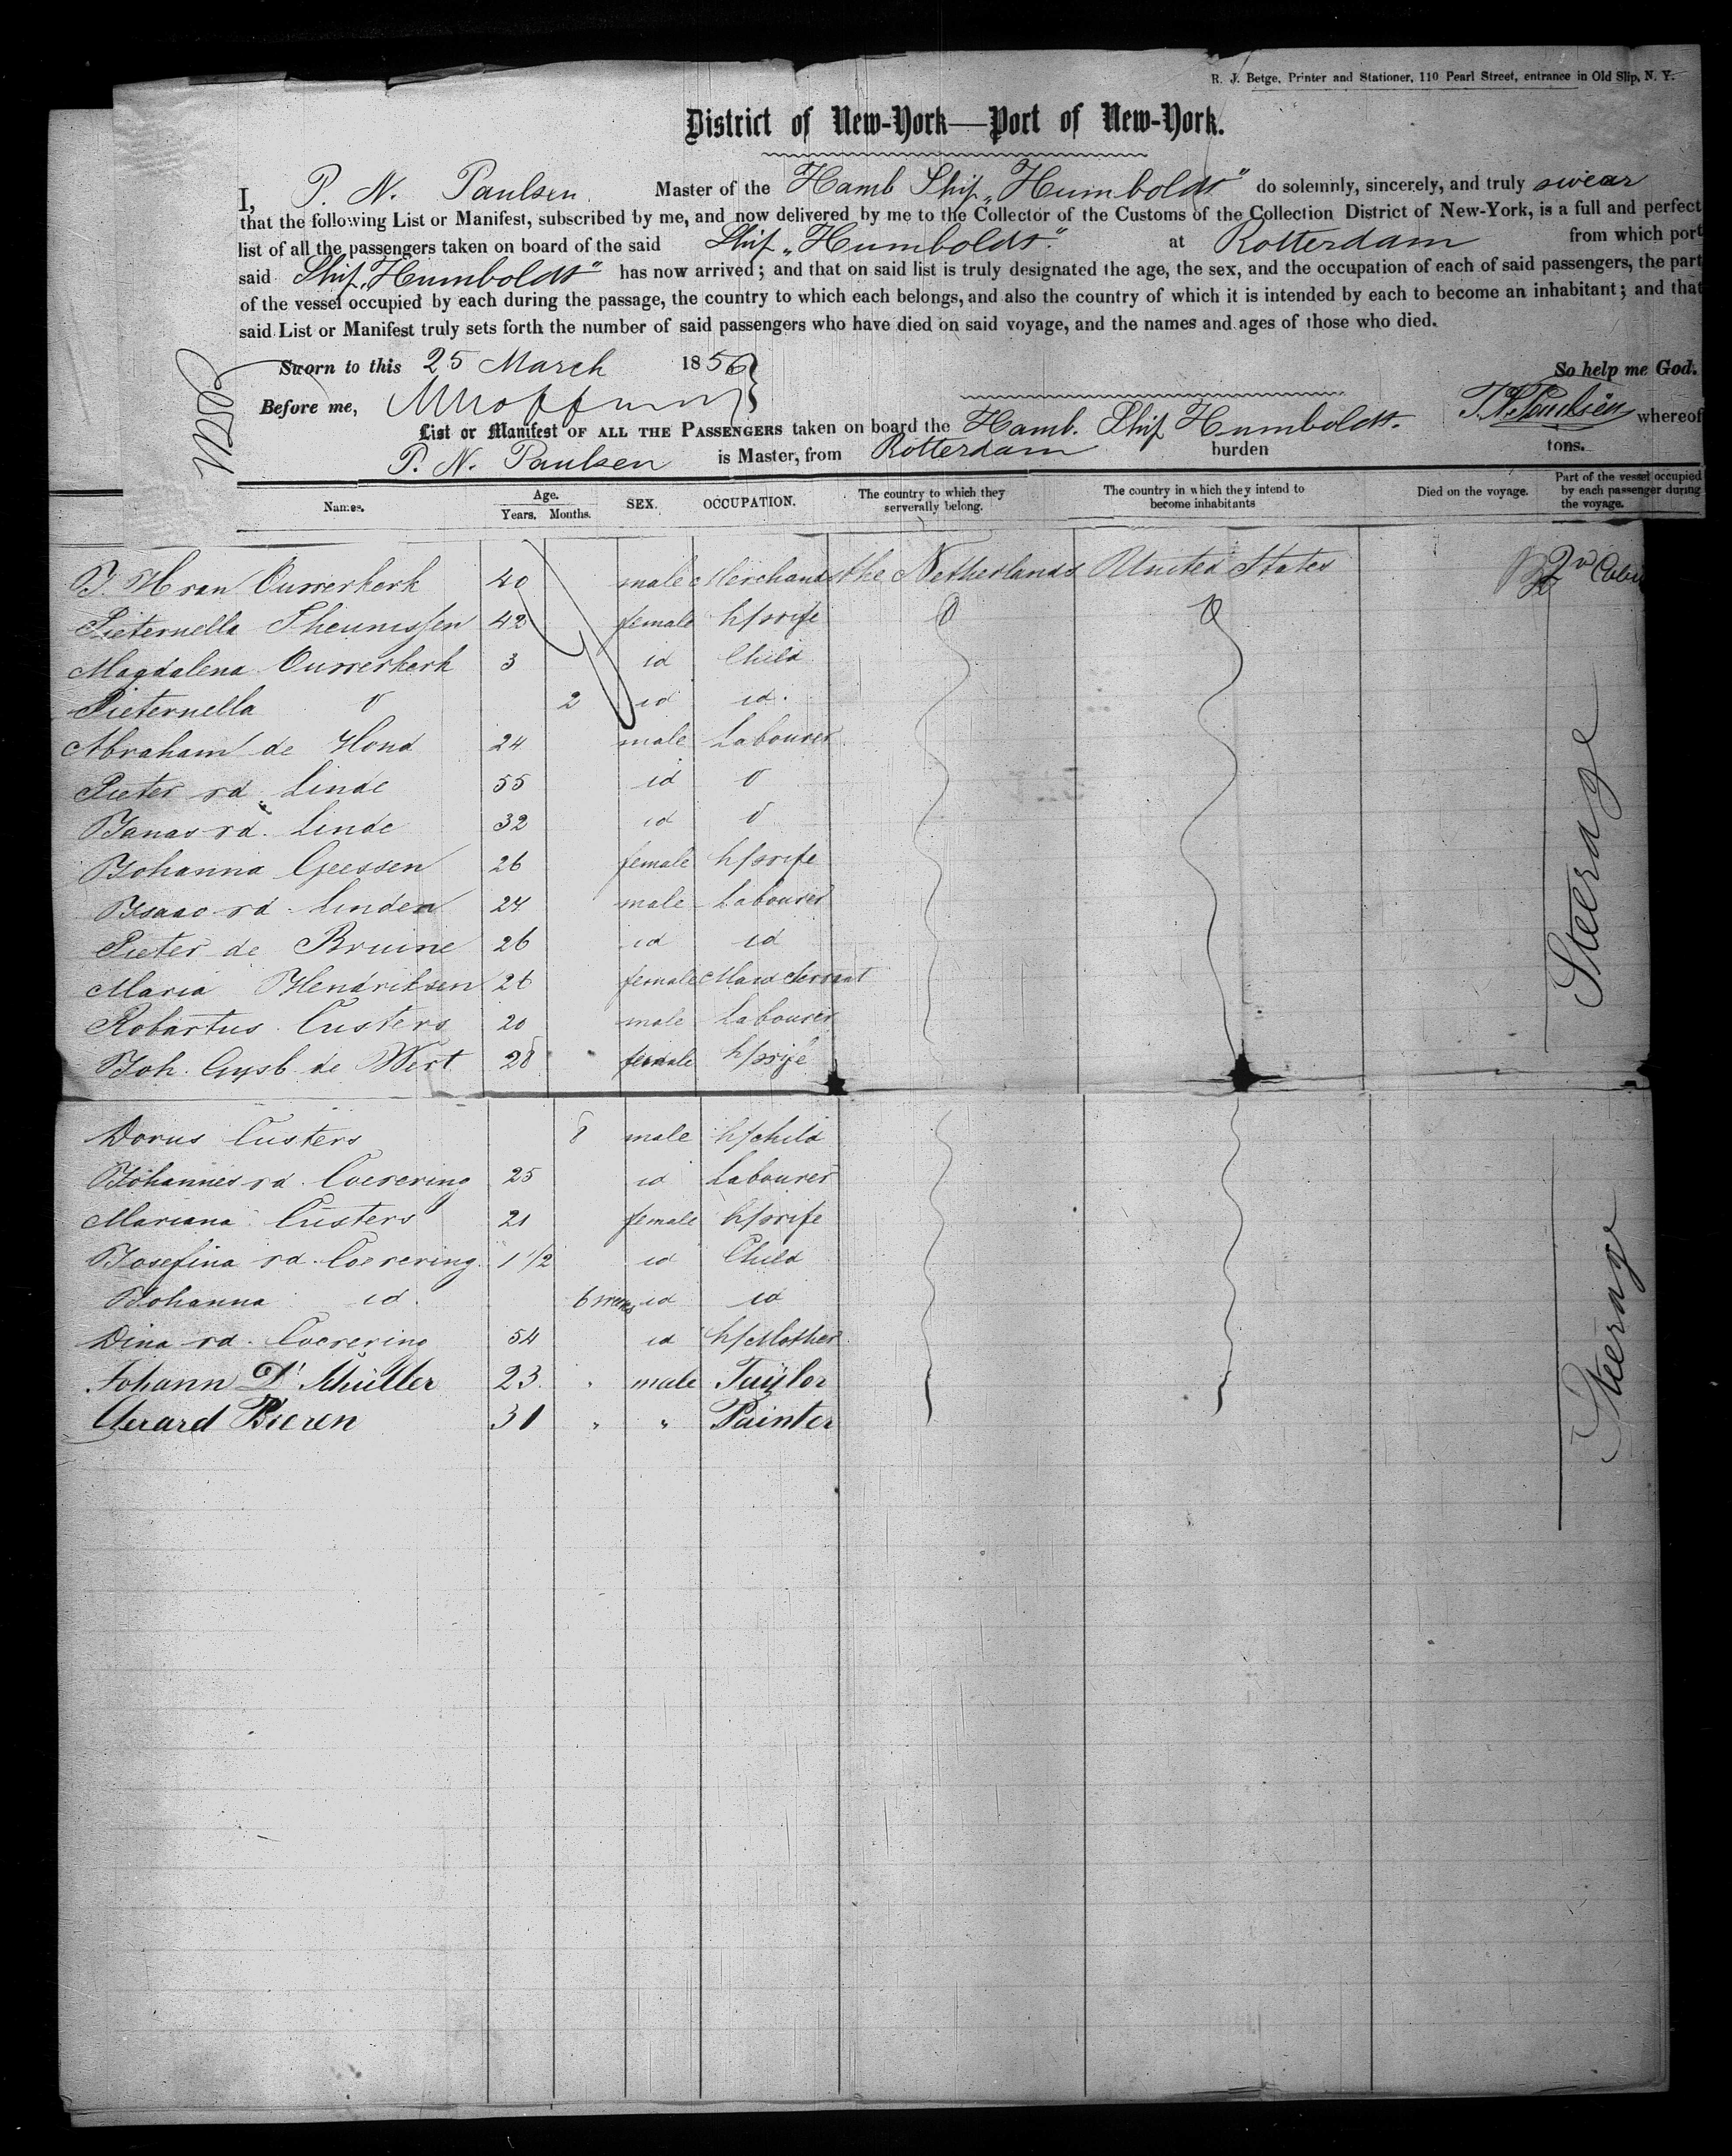 R. J. Betge, Printer and Stationer, 110 Pearl Street, entrance in Old Slip, N. Y.
District of New-York—Port of New-York.
I, P. N. Paulsen Master of the Hamb Ship „Humboldt" do solemnly, sincerely, and truly swear
that the following List or Manifest, subscribed by me, and now delivered by me to the Collector of the Customs of the Collection District of New-York, is a full and perfect
list of all the passengers taken on board of the said Ship „Humboldt". at Rotterdam from which port
said Ship „Humboldt" has now arrived; and that on said list is truly designated the age, the sex, and the occupation of each of said passengers, the part
of the vessel occupied by each during the passage, the country to which each belongs, and also the country of which it is intended by each to become an inhabitant; and that
said List or Manifest truly sets forth the number of said passengers who have died on said voyage, and the names and ages of those who died.
Sworn to this 25 March 1856 So help me God.
Before me, P. N. Paulsen
List or Manifest OF ALL THE PASSENGERS taken on board the Hamb. Ship Humboldt. whereof
P. N. Paulsen is Master, from Rotterdam burden tons.
Names. Age. Years. Months. SEX. OCCUPATION. The country to which they serverally belong. The country in which they intend to become inhabitants Died on the voyage. Part of the vessel occupied by each passenger during the voyage.
J. H van Ouwerkerk 40 male Merchand the Netherlands United States 2d Cabin
Pieternella Theunissen 42 female h/wife
Magdalena Ouwerkerk 3 id Child
Pieternella 2 id id.
Abraham de Hond 24 male Labourer
Pieter vd Linde 55 id
Janas vd. Linde 32 id
Johanna Geessen 26 female h/wife
Isaac vd. Linden 24 male Labourer
Pieter de Bruine 26 id id
Maria Hendriksen 26 female Maid Servant
Robartus Custers 20 male Labourer
Joh. Gysb de Wert 28 female h/wife
Steerage
Dorus Custers 8 male h/child
Johannes vd. Coevering 25 id Labourer
Mariana Custers 21 female h/wife
Josefina vd. Coevering. 1 1/2 id Child
Johanna id. 6 weeks id id
Dina vd. Coevering 54 id h/Mother
Johann D. Schüller 23. male Taylor
Gerard Bieren 31 " " Painter
Steerage